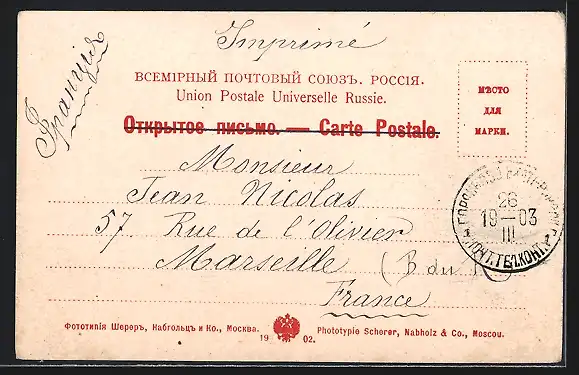 Imprimé
Франція
ВСЕМІРНЫЙ ПОЧТОВЫЙ СОЮЗЪ. РОССІЯ.
Union Postale Universelle Russie.
Открытое письмо. — Carte Postale.
МѢСТО
ДЛЯ
МАРКИ.
Monsieur
Jean Nicolas
57 Rue de l'Olivier
Marseille (B. du
France
26
19—03
III
ПОЧТ.ТЕЛ.КОНТ.
Фототипія Шереръ, Набгольцъ и Ко., Москва. 1902. Phototypie Scherer, Nabholz & Co., Moscou.